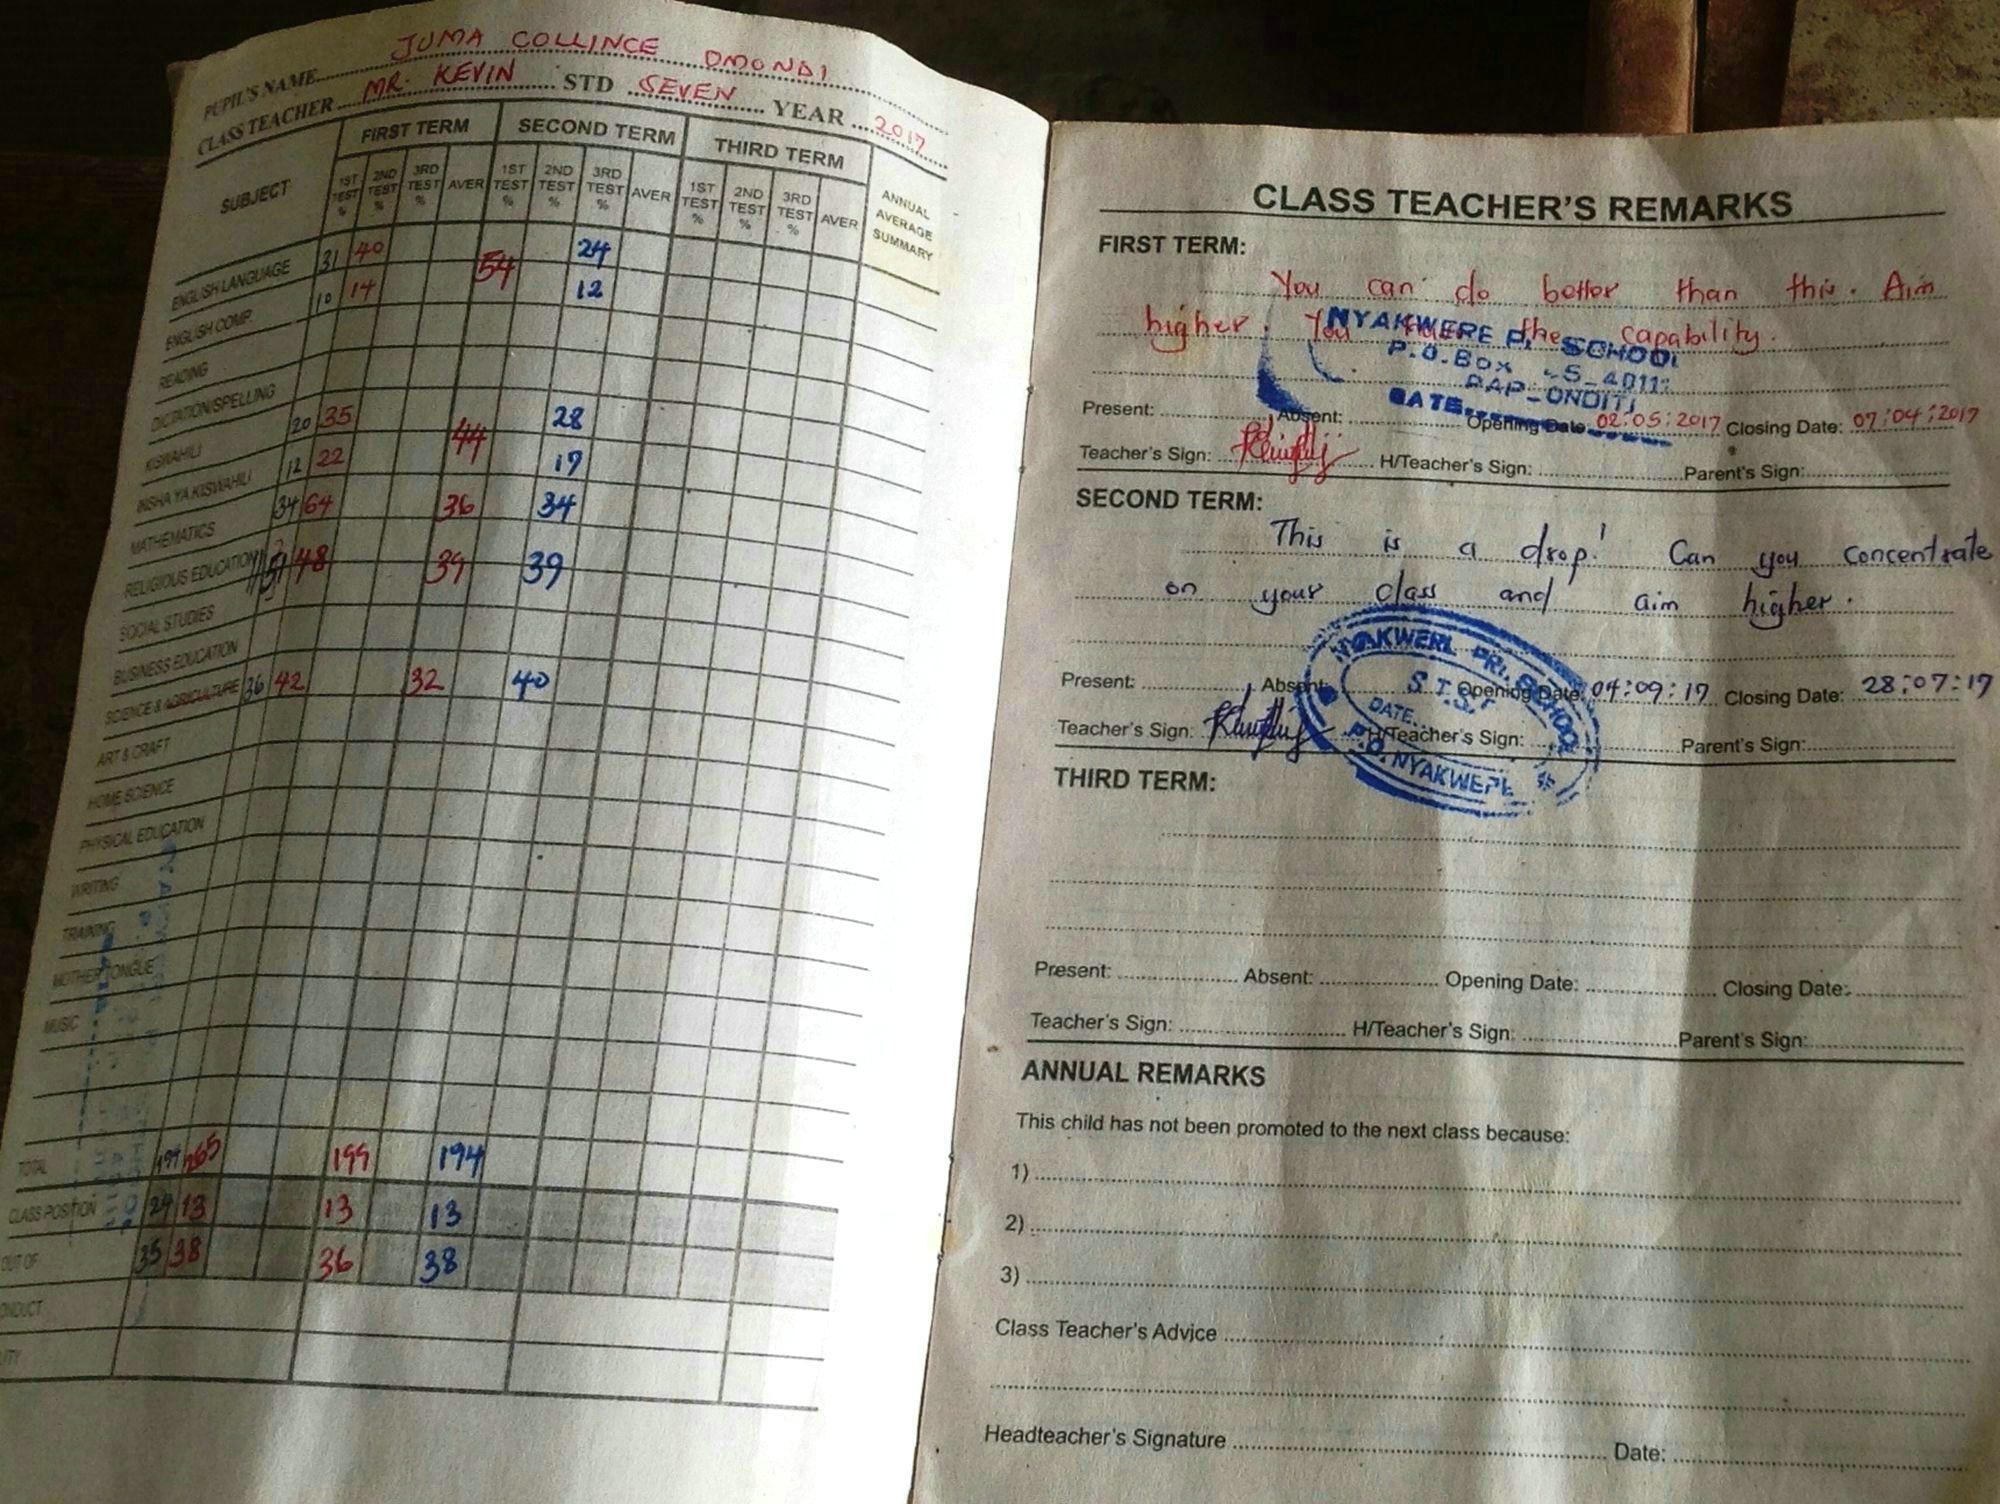 PUPIL'S NAME JUMA COLLINCE OMONDI
CLASS TEACHER MR. KEVIN STD SEVEN YEAR 2017
SUBJECT FIRST TERM SECOND TERM THIRD TERM ANNUAL AVERAGE SUMMARY
1ST TEST % 2ND TEST % 3RD TEST % AVER 1ST TEST % 2ND TEST % 3RD TEST % AVER 1ST TEST % 2ND TEST % 3RD TEST % AVER
ENGLISH LANGUAGE 31 40 54 24
ENGLISH COMP. 10 14 12
READING
DICTATION/SPELLING
KISWAHILI 20 35 44 28
INSHA YA KISWAHILI 12 22 17
MATHEMATICS 34 64 36 34
RELIGIOUS EDUCATION 48 39 39
SOCIAL STUDIES
BUSINESS EDUCATION
SCIENCE & AGRICULTURE 36 42 32 40
ART & CRAFT
HOME SCIENCE
PHYSICAL EDUCATION
WRITING
TRAINING
MOTHER TONGUE
MUSIC
TOTAL 265 199 194
CLASS POSITION 24 13 13 13
OUT OF 35 38 36 38
CLASS TEACHER'S REMARKS
FIRST TERM:
You can do better than this. Aim
higher. You the capability.
NYAKWERE P. SCHOOL
P.O. Box
PAP-ONDITI
DATE
Present: Absent: Opening Date 02:05:2017 Closing Date: 07:04:2017
Teacher's Sign: H/Teacher's Sign: Parent's Sign:
SECOND TERM:
This is a drop! Can you concentrate
on your class and aim higher.
NYAKWERE PRI. SCHOOL
DATE
P.O. NYAKWERE
Present: Absent: Opening Date: 04:09:17 Closing Date: 28:07:17
Teacher's Sign: H/Teacher's Sign: Parent's Sign:
THIRD TERM:
Present: Absent: Opening Date: Closing Date:
Teacher's Sign: H/Teacher's Sign: Parent's Sign:
ANNUAL REMARKS
This child has not been promoted to the next class because:
1)
2)
3)
Class Teacher's Advice
Headteacher's Signature Date: